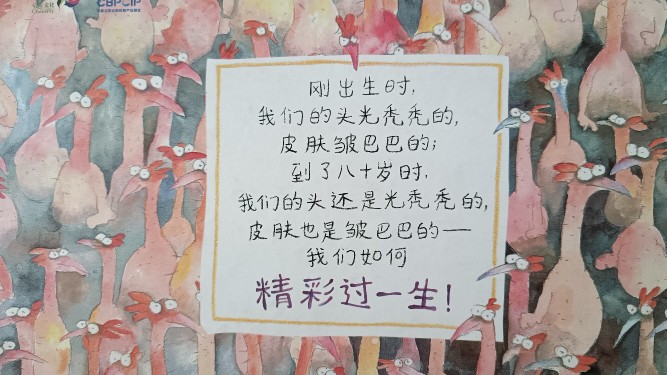 CBPCIP
刚出生时,
我们的头光秃秃的,
皮肤皱巴巴的;
到了八十岁时,
我们的头还是光秃秃的,
皮肤也是皱巴巴的——
我们如何
精彩过一生!